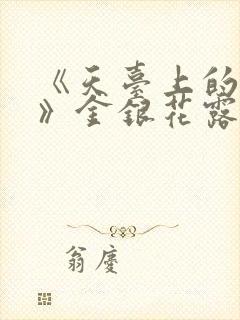 《天臺上的
》金銀花露
翁慶